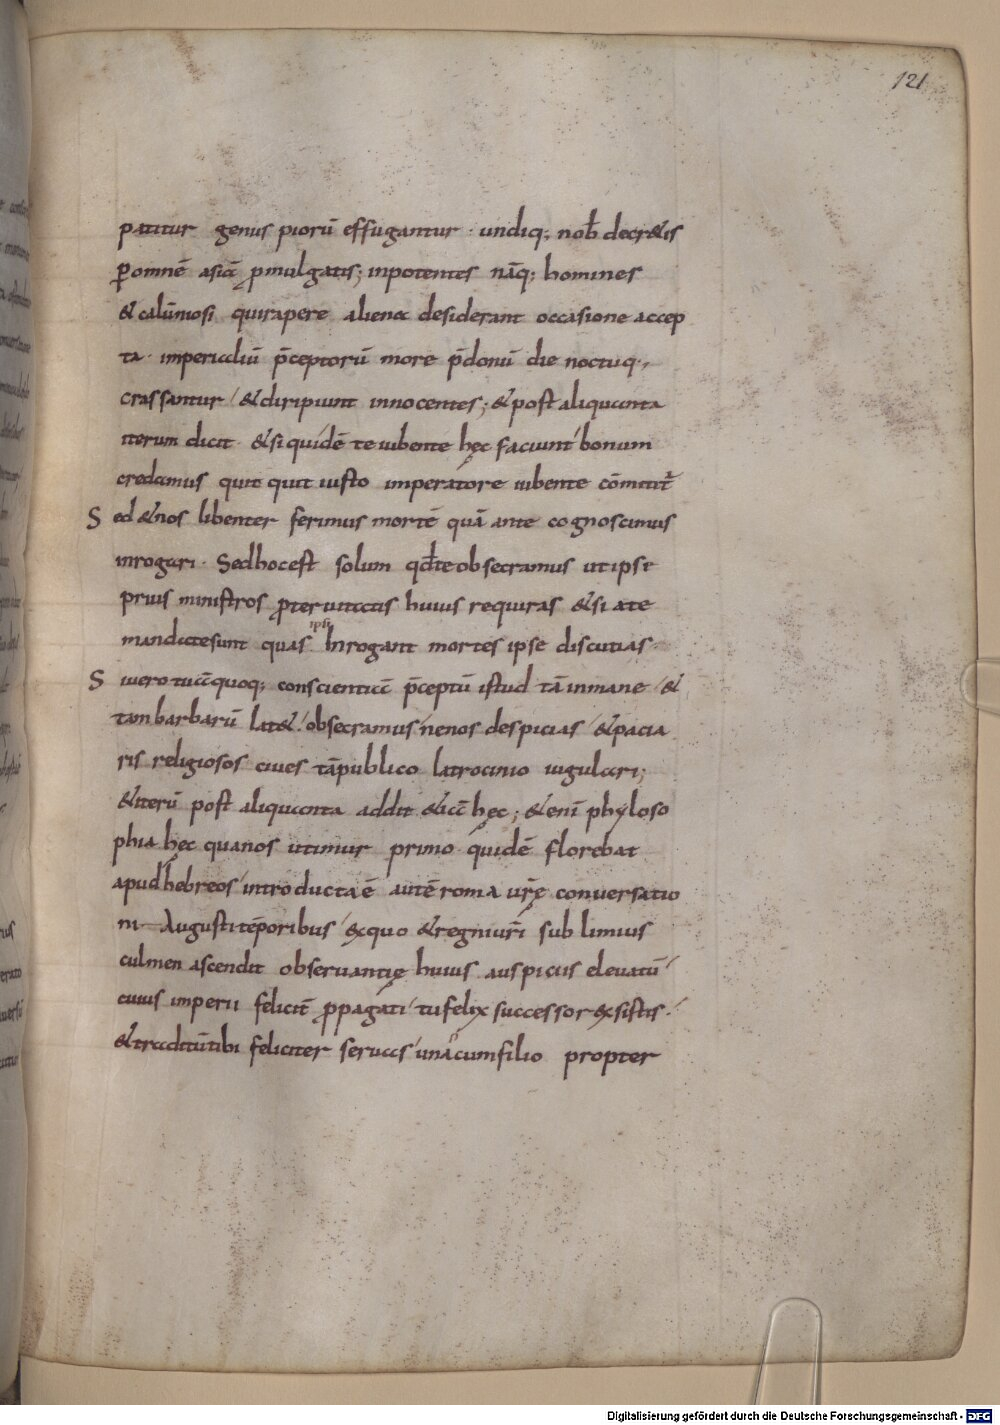 121
patitur genus piorū effugantur · undiq; nob̄ decr&is
p̲omnē asiā p̱mulgatis; inpotentes nāq; homines
& calūniosi quirapere aliena desiderant occasione accep
ta · imperialiū p̄ceptorū more p̄donū die noctuq·,
crassantur / & diripiunt innocentes; & post aliquanta
iterum dicit · & si quidē te iubente hęc faciunt / bonum
credamus quit quit iusto imperatore iubente cōmittit̄
Sed & nos libenter ferimus mortē quā ante cognoscimus
inrogari · Sed hoc est solum qd̄ te obsecramus ut ipse
prius ministros p̱teruitatis huius requiras & si a te
mandatesunt quas ipsi Inrogant mortes ipse discutias ·
Siuero tuāquoq; conscientiā p̄ceptū istud tā inmane / &
tam barbarū lat& / obsecramus / nenos despicias / & pacia
ris religiosos ciues tā publico latrocinio iugulari;
& iterū post aliquanta addit & iā hęc; & enī phyloso
phia hęc quanos utimur primo quidē florebat
apud hebreos / introducta ē autē roma ur̄ę conuersatio
ni Augusti tēporibus / exquo & regni uri sublimius
culmen ascendit obseruantię huius auspiciis eleuatū /
cuius imperii feliciū p̱pagati / tu felix successor existis · /
& traditū tibi feliciter seruas / unā cum filio propter
Digitalisierung gefördert durch die Deutsche Forschungsgemeinschaft - DFG